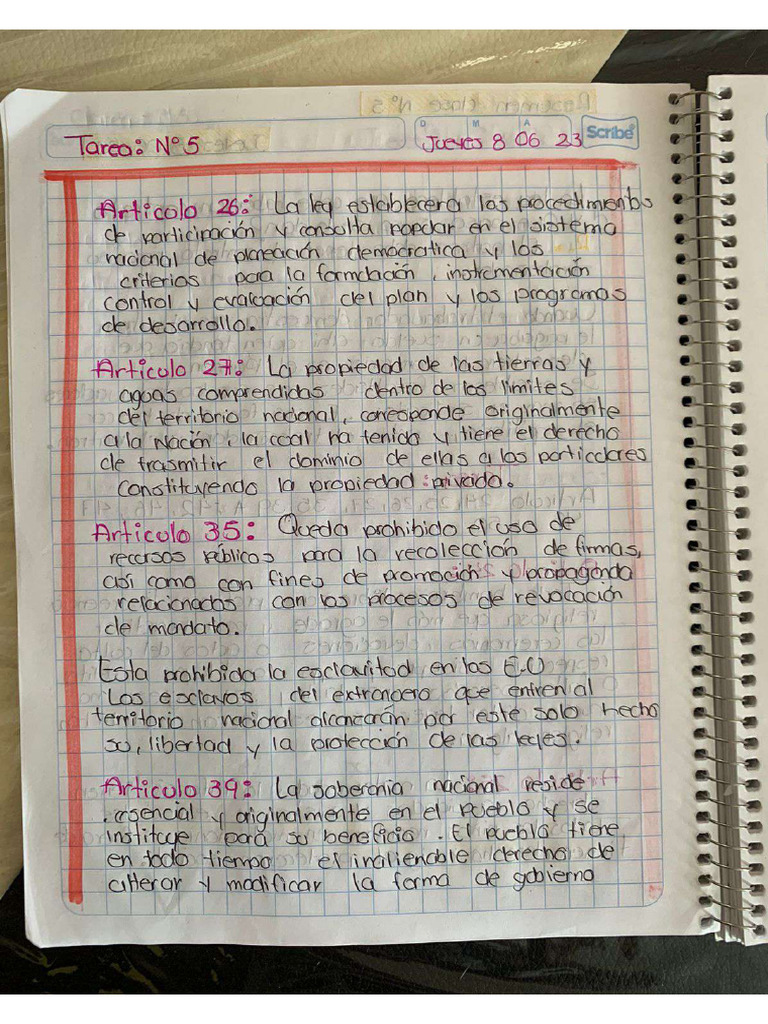 Tarea: N° 5
D M A
Jueves 8 06 23 Scribe
Articulo 26: La ley establecera los procedimientos
de participación y consulta popular en el sistema
nacional de planeación democratica y los
criterios para la formulación, instrumentación
control y evaluación del plan y los programas
de desarrollo.
Articulo 27: La propiedad de las tierras y
aguas comprendidas dentro de los limites
del territorio nacional, corresponde originalmente
a la Nación, la cual ha tenido y tiene el derecho
de trasmitir el dominio de ellas a los particulares
constituyendo la propiedad privada.
Articulo 35: Queda prohibido el uso de
recursos públicos para la recolección de firmas,
asi como con fines de promoción y propaganda
relacionados con los procesos de revocación
de mandato.
Esta prohibida la esclavitud en los E.U
Los esclavos del extranjero que entren al
territorio nacional alcanzarán por este solo hecho
su, libertad y la protección de las leyes.
Articulo 39: La soberania nacional reside
esencial y originalmente en el pueblo y se
instituye para su beneficio. El pueblo tiene
en todo tiempo el inalienable derecho de
alterar y modificar la forma de gobierno